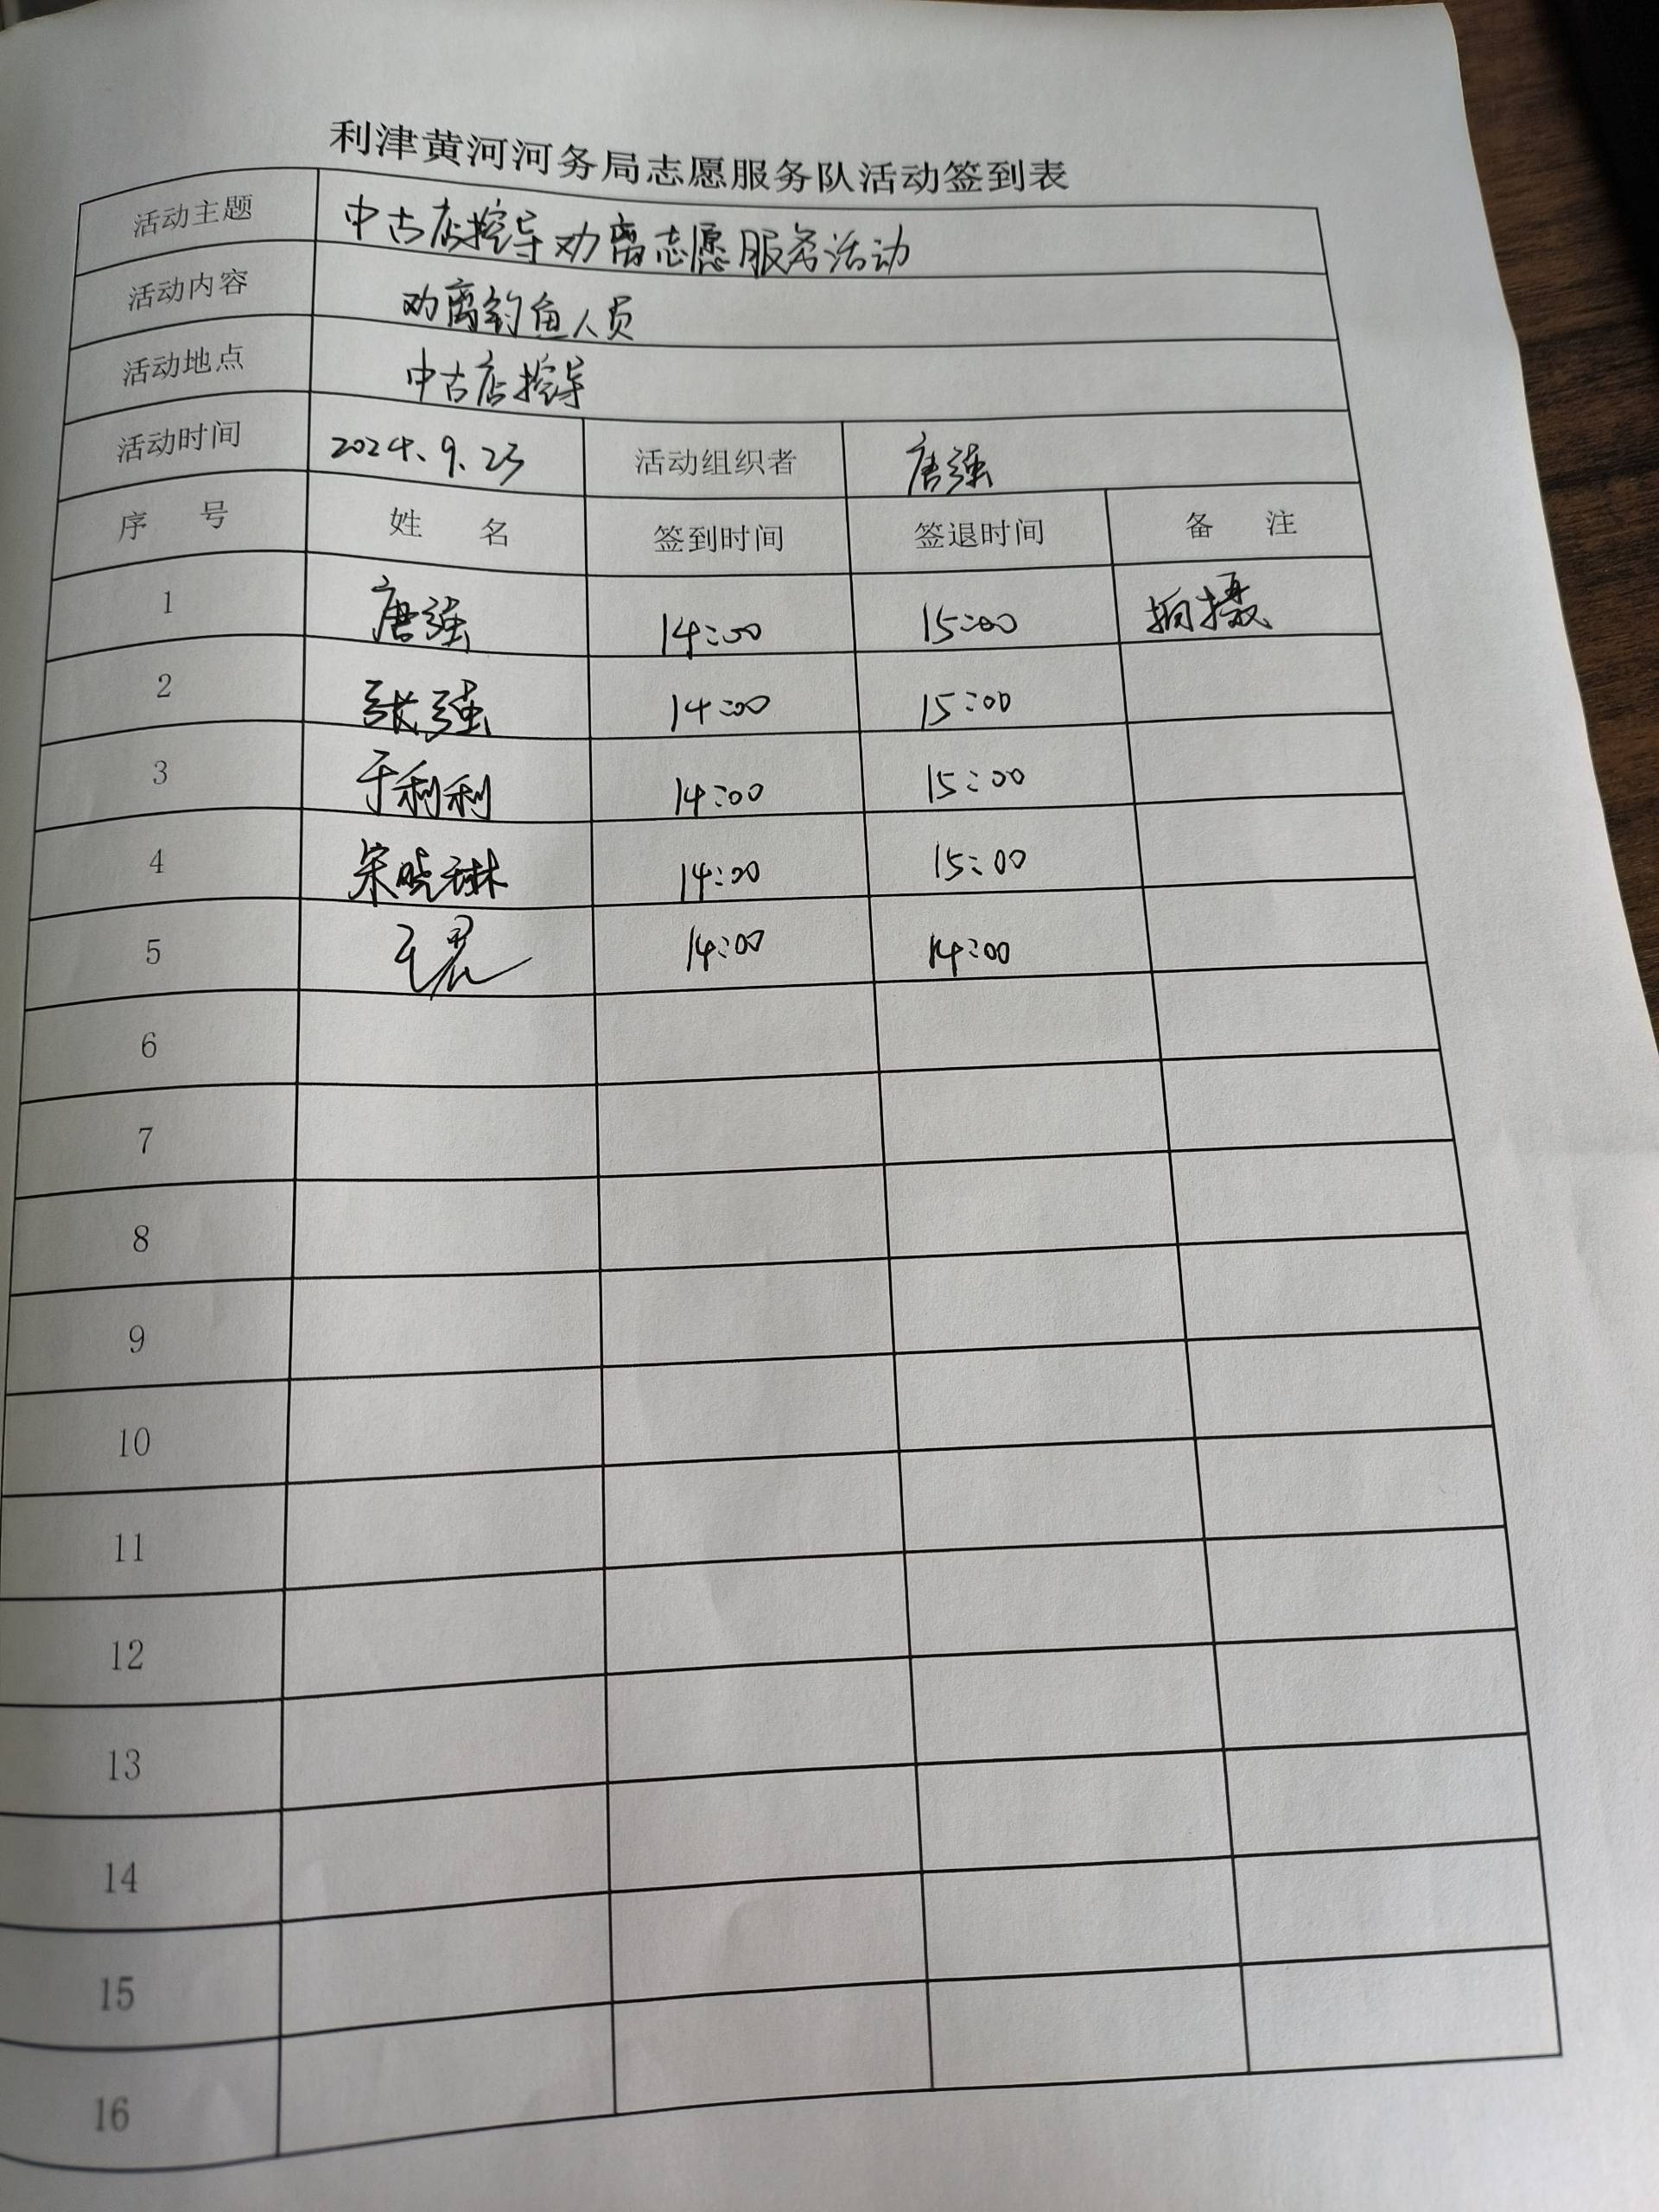 利津黄河河务局志愿服务队活动签到表
活动主题 中古店控导劝离志愿服务活动
活动内容 劝离钓鱼人员
活动地点 中古店控导
活动时间 2024.9.23 活动组织者 唐强
序 号 姓 名 签到时间 签退时间 备 注
1 唐强 14:00 15:00 拍摄
2 张强 14:00 15:00
3 于利利 14:00 15:00
4 宋晓琳 14:00 15:00
5 14:00 14:00
6
7
8
9
10
11
12
13
14
15
16